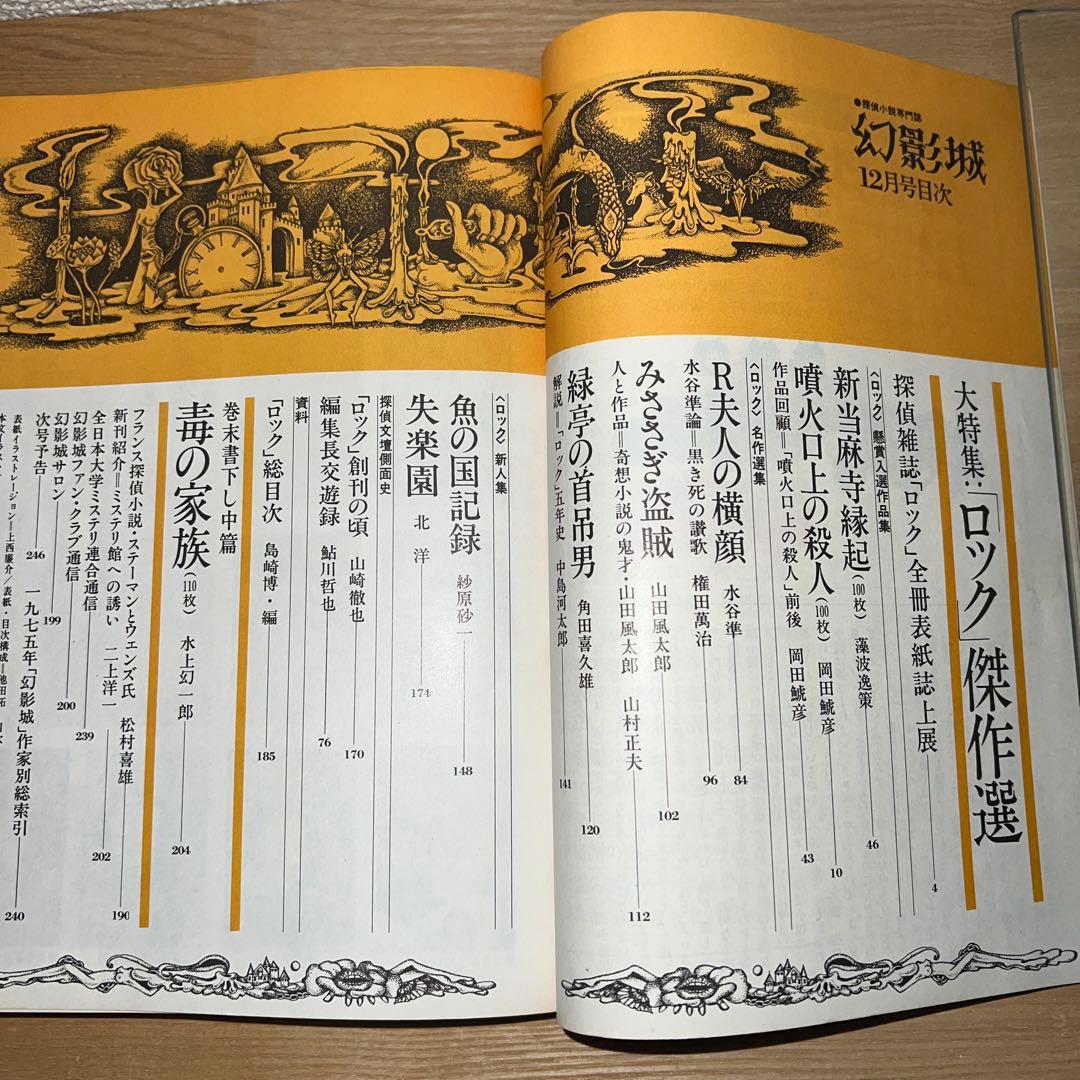 ●探偵小説専門誌
幻影城
12月号目次
大特集:「ロック」傑作選
探偵雑誌「ロック」全冊表紙誌上展 4
〈ロック〉懸賞入選作品集
新当麻寺縁起(100枚) 藻波逸策 46
噴火口上の殺人(100枚) 岡田鯱彦 10
作品回顧=「噴火口上の殺人」前後 岡田鯱彦 43
〈ロック〉名作選集
R夫人の横顔 水谷準 84
水谷準論=黒き死の讃歌 権田萬治 96
みささぎ盗賊 山田風太郎 102
人と作品=奇想小説の鬼才・山田風太郎 山村正夫 112
緑亭の首吊男 角田喜久雄 120
解説=「ロック」五年史 中島河太郎 141
〈ロック〉新人集
魚の国記録 紗原砂一 148
失楽園 北洋 174
探偵文壇側面史
「ロック」創刊の頃 山崎徹也 170
編集長交遊録 鮎川哲也 76
資料
「ロック」総目次 島崎博・編 185
巻末書下し中篇
毒の家族(110枚) 水上幻一郎 204
フランス探偵小説・ステーマンとウェンズ氏 松村喜雄 190
新刊紹介=ミステリ館への誘い 二上洋一 202
全日本大学ミステリ連合通信 239
幻影城ファン・クラブ通信 200
幻影城サロン 199
次号予告 246
一九七五年「幻影城」作家別総索引 240
表紙イラストレーション=上西康介/表紙・目次構成=池田拓